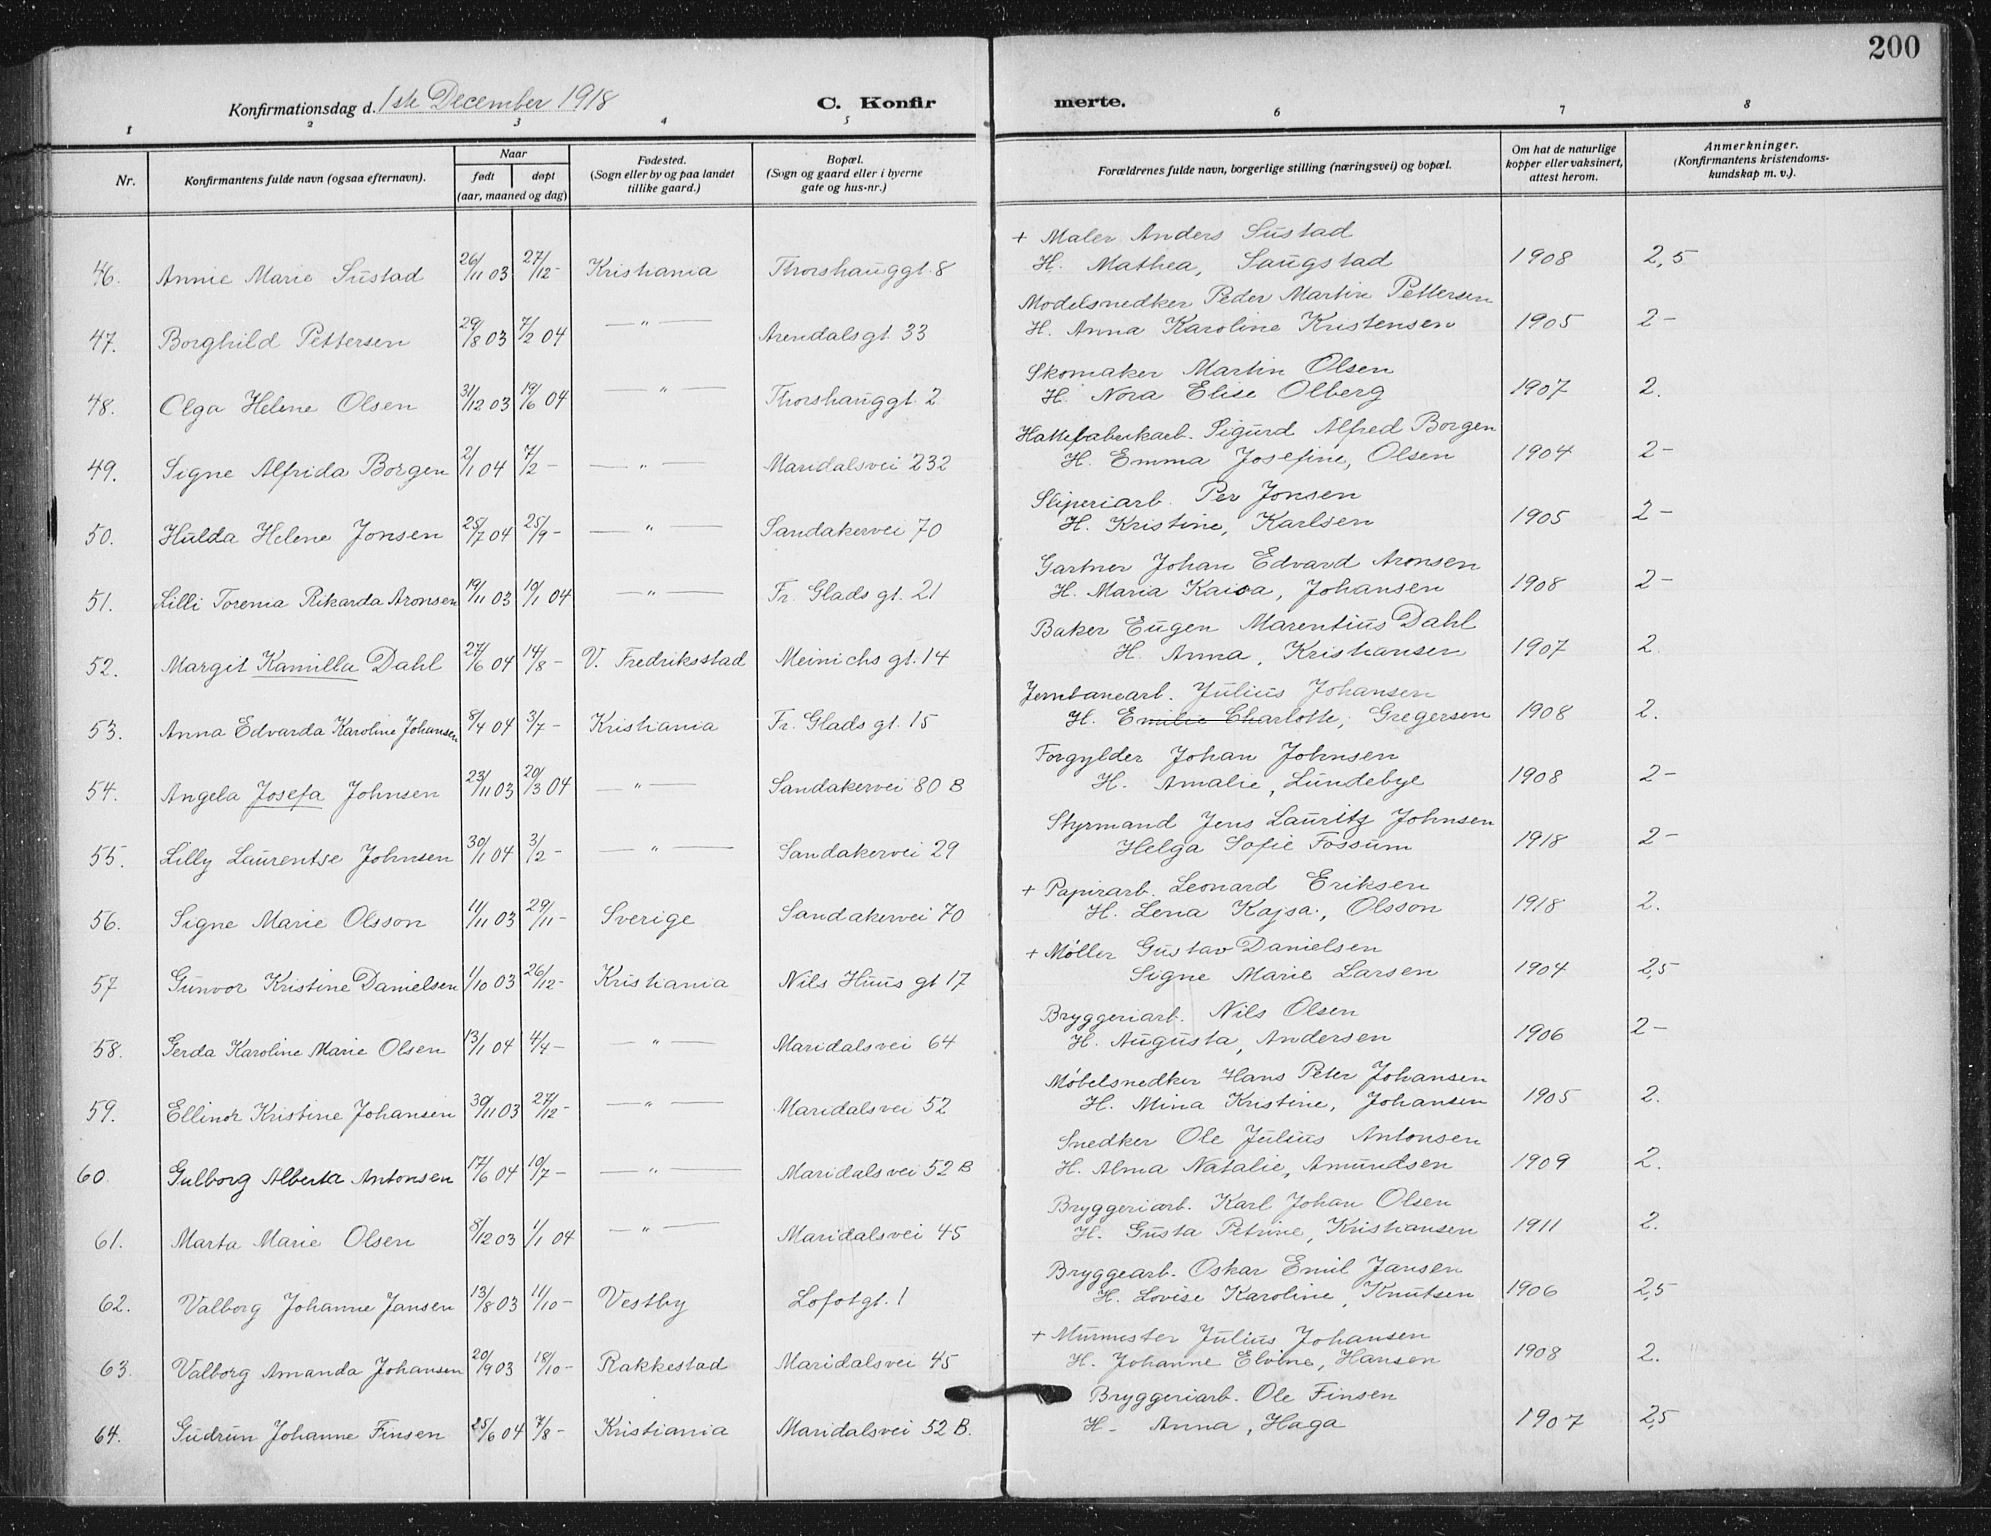 200
Konfirmationsdag d. 1ste December 1918 C. Konfirmerte.
1 2 3 4 5 6 7 8
Nr. Konfirmantens fulde navn (ogsaa efternavn). Naar født døpt (aar, maaned og dag) Fødested. (Sogn eller by og paa landet tillike gaard.) Bopæl. (Sogn og gaard eller i byerne gate og hus-nr.) Forældrenes fulde navn, borgerlige stilling (næringsvei) og bopæl. Om hat de naturlige kopper eller vaksinert, attest herom. Anmerkninger. (Konfirmantens kristendomskundskap m. v.).
+ Maler Anders Sustad
46. Annie Marie Sustad 26/11 03 27/12 - Kristiania Thorshauggt. 8 H. Mathea, Saugstad 1908 2,5
Modelsnedker Peder Martin Pettersen
47. Borghild Pettersen 29/8 03 7/2 04 — " — Arendalsgt. 33 H. Anna Karoline Kristensen 1905 2 -
Skomaker Martin Olsen
48. Olga Helene Olsen 31/12 03 19/6 04 — " — Thorshauggt. 2 H. Nora Elise Olberg 1907 2.
Hattefabrikarb. Sigurd Alfred Borgen
49. Signe Alfrida Borgen 2/1 04 7/2 - — " — Maridalsvei 232 H. Emma Josefine, Olsen 1904 2 -
Sliperiarb. Per Jonsen
50. Hulda Helene Jonsen 25/7 04 25/9 - — " — Sandakervei 70 H. Kristine, Karlsen 1905 2 -
Gartner Johan Edvard Aronsen
51. Lilli Torenia Rikarda Aronsen 19/11 03 10/1 04 — " — Fr. Glads gt. 21 H. Maria, Johansen 1908 2 -
Baker Eugen Marentius Dahl
52. Margit Kamilla Dahl 27/6 04 14/8 - V. Fredriksstad Meinichs gt. 14 H. Anna, Kristiansen 1907 2.
Jernbanearb. Julius Johansen
53. Anna Edvarda Karoline Johansen 8/4 04 3/7 - Kristiania Fr. Glads gt. 15 H. Emilie Charlotte, Gregersen 1908 2.
Forgylder Johan Johnsen
54. Angela Josefa Johnsen 23/11 03 20/3 04 — " — Sandakervei 80 B H. Amalie, Lundebye 1908 2 -
Styrmand Jens Lauritz Johnsen
55. Lilly Laurentse Johnsen 30/1 04 3/2 - — " — Sandakervei 29 Helga Sofie Fossum 1918 2 -
+ Papirarb. Leonard Eriksen
56. Signe Marie Olsson 11/11 03 29/11 - Sverige Sandakervei 70 H. Lena Kajsa, Olsson 1918 2.
+ Møller Gustav Danielsen
57 Gunvor Kristine Danielsen 1/10 03 26/12 - Kristiania Nils Huus gt 17 Signe Marie Larsen 1904 2,5
Bryggeriarb. Nils Olsen
58. Gerda Karoline Marie Olsen 13/1 04 4/4 - — " — Maridalsvei 64 H. Augusta, Andersen 1906 2 -
Møbelsnedker Hans Peter Johansen
59. Ellinor Kristine Johansen 30/11 03 27/12 - — " — Maridalsvei 52 H. Mina Kristine, Johansen 1905 2.
Snedker Ole Julius Antonsen
60. Gulborg Alberta Antonsen 17/6 04 10/7 - — " — Maridalsvei 52 B H. Alma Natalie, Amundsen 1909 2.
Bryggeriarb. Karl Johan Olsen
61. Marta Marie Olsen 8/12 03 1/1 04 — " — Maridalsvei 45 H. Gusta Petrine, Kristiansen 1911 2.
Bryggearb. Oskar Emil Jansen
62. Valborg Johanne Jansen 13/8 03 11/10 - Vestby Lofotgt. 1 H. Lovise Karoline, Knutsen 1906 2,5
+ Murmester Julius Johansen
63. Valborg Amanda Johansen 20/9 03 18/10 - Rakkestad Maridalsvei 45 H. Johanne Elvine, Hansen 1908 2.
Bryggeriarb. Ole Finsen
64. Gudrun Johanne Finsen 25/6 04 7/8 - Kristiania Maridalsvei 52 B. H. Anna, Haga 1907 2,5